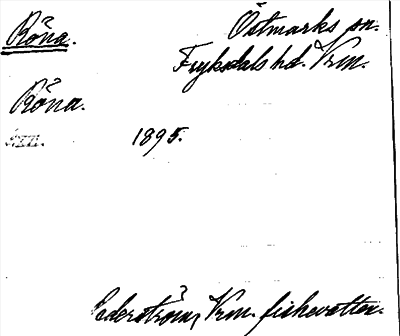 Röna.
Östmarks sn.
Fryksdals hd. Vrm.
Röna.
1895.
Cederström, Vrm. fiskevatten.